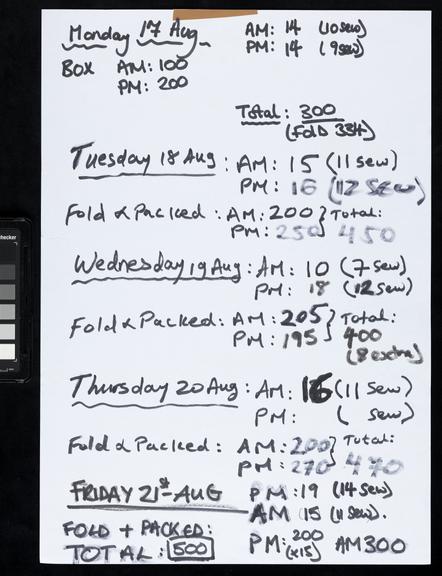 checker
Monday 17 Aug AM: 14 (10 sew)
PM: 14 (9 sew)
BOX AM: 100
PM: 200
Total: 300
(Fold 334)
Tuesday 18 Aug: AM: 15 (11 sew)
PM: 16 (12 sew)
Fold & Packed: AM: 200 } Total:
PM: 250 } 450
Wednesday 19 Aug: AM: 10 (7 sew)
PM: 18 (12 sew)
Fold & Packed: AM: 205 } Total:
PM: 195 } 400
(8 extra)
Thursday 20 Aug: AM: 16 (11 sew)
PM: ( sew)
Fold & Packed: AM: 200 } Total:
PM: 270 } 470
FRIDAY 21st AUG PM: 19 (14 sew)
AM 15 (11 sew).
FOLD + PACKED:
TOTAL: 500 PM: 200 (x15) AM 300